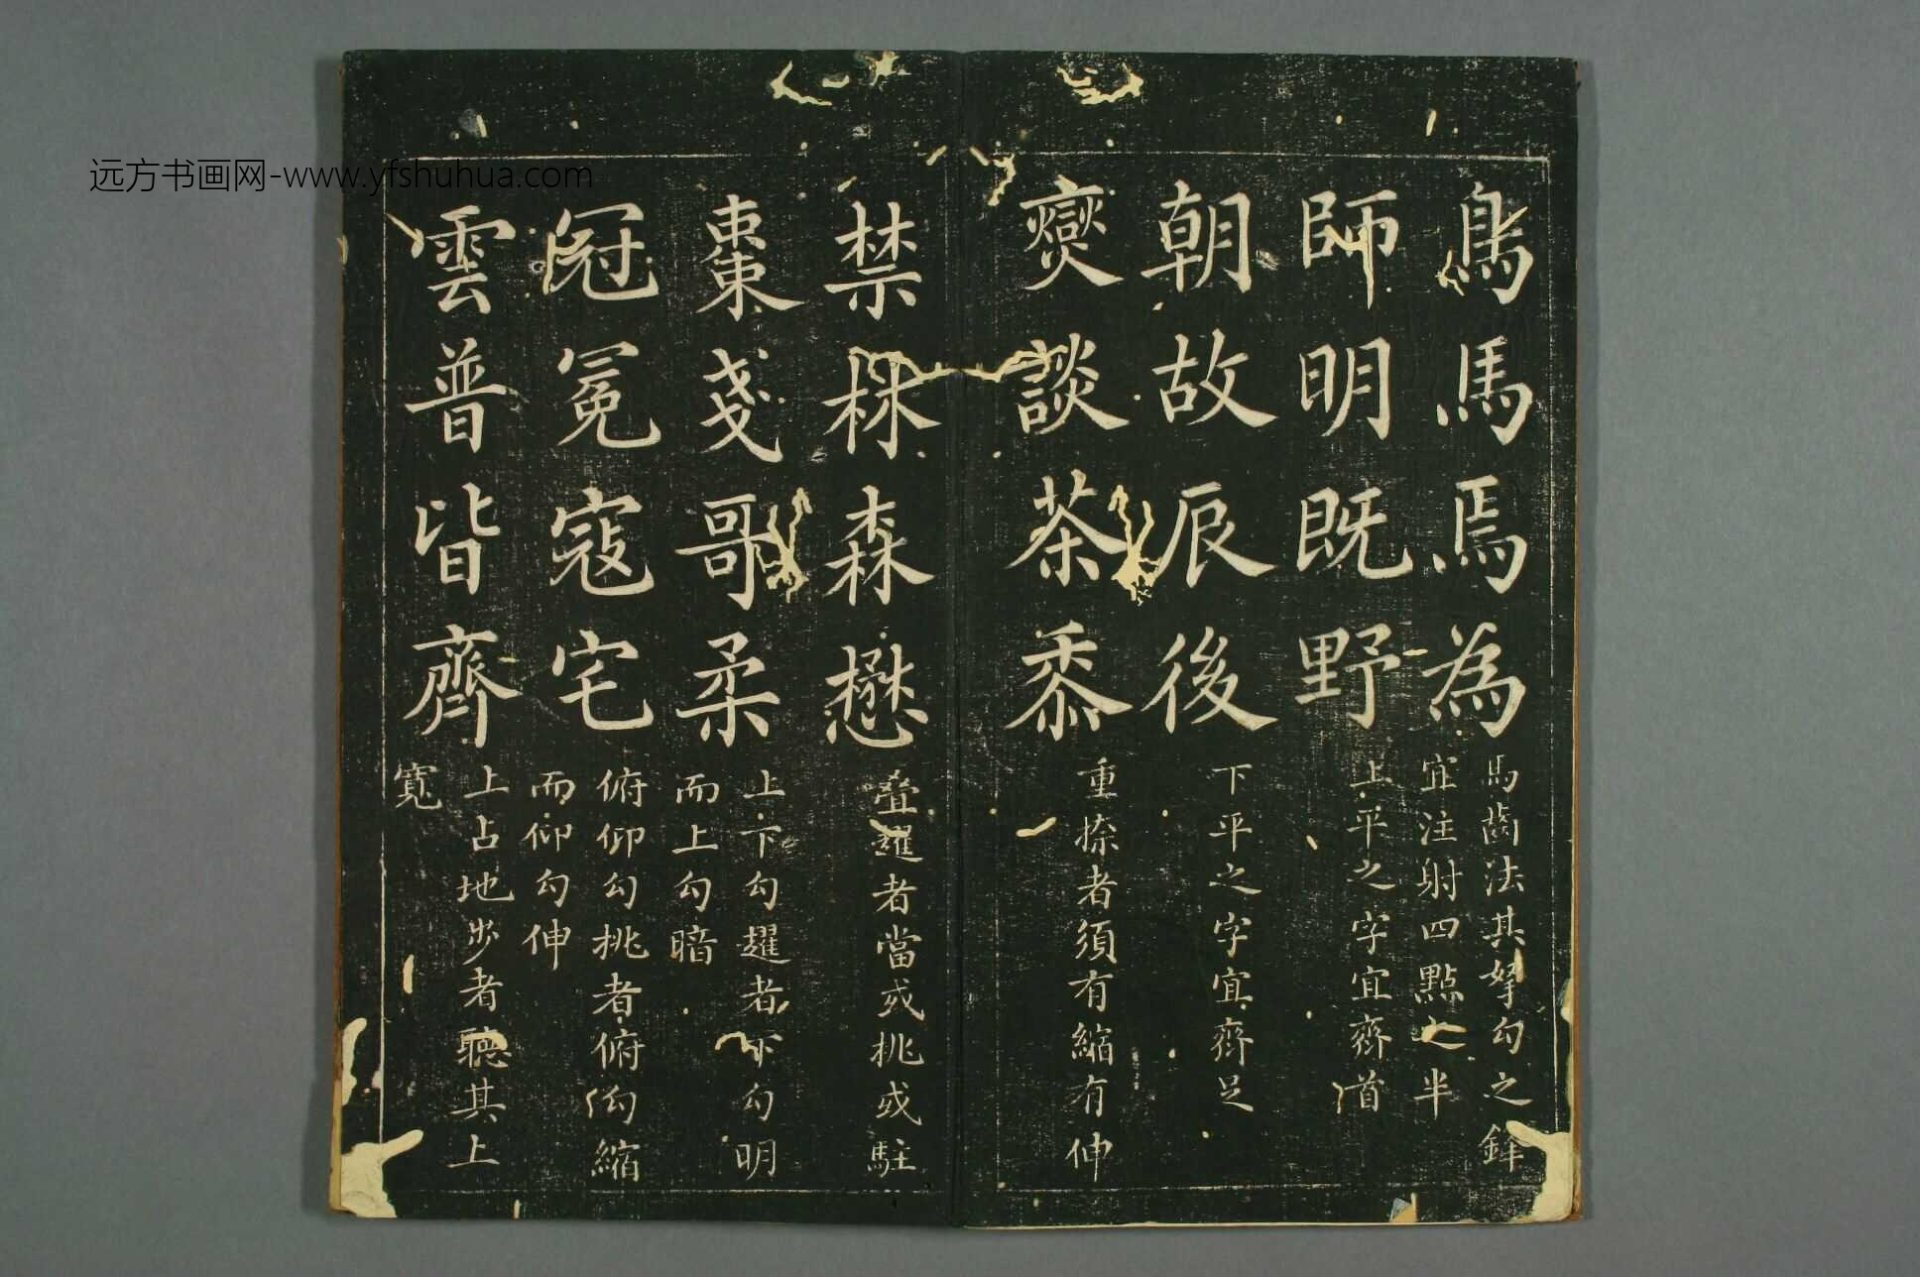 远方书画网-www.yfshuhua.com
鳥馬焉為
馬齒法其挐勾之鋒
宜注射四點之半
師明既野
上平之字宜齊首
朝故辰後
下平之字宜齊足
爕談茶黍
重捺者須有縮有伸
禁森懋
疊趯者當或挑或駐
棗戔哥柔
上下勾趯者下勾明
而上勾暗
冠冕寇宅
俯仰勾挑者俯勾縮
而仰勾伸
雲普皆齊
上占地步者聽其上
寬